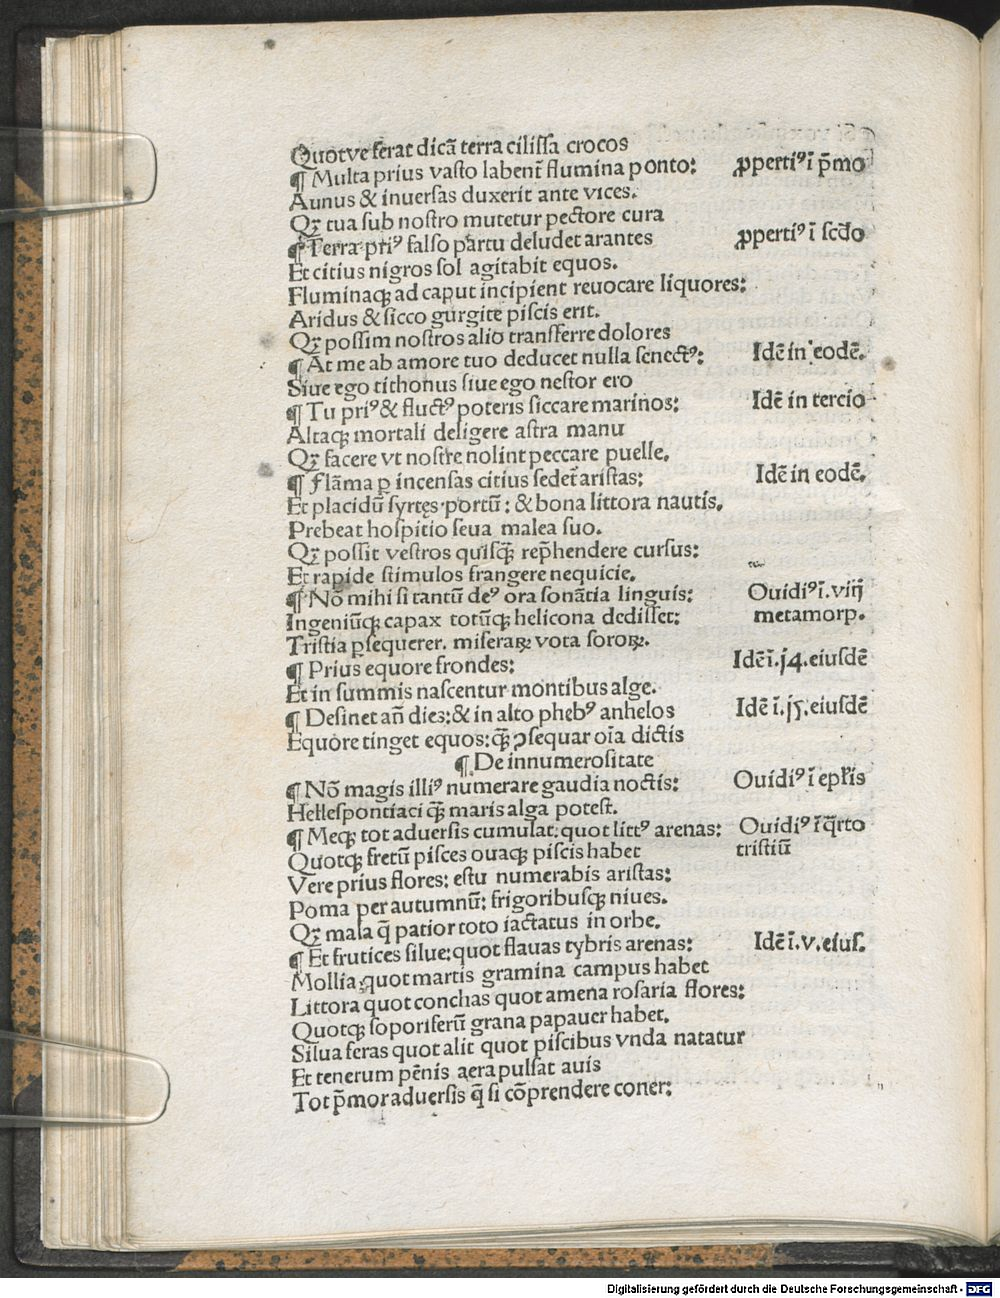 Quotve ferat dicā terra cilissa crocos
¶ Multa prius vasto labent̄ flumina ponto: ꝓperti⁹ ī p̄mo
Aunus & inversas duxerit ante vices.
Qꝫ tua sub nostro mutetur pectore cura
¶ Terra pri⁹ falso partu deludet arantes ꝓperti⁹ ī scd̄o
Et citius nigros sol agitabit equos.
Fluminaqꝫ ad caput incipient reuocare liquores:
Aridus & sicco gurgite piscis erit.
Qꝫ possim nostros alio transferre dolores
¶ At me ab amore tuo deducet nulla senect⁹: Idē in eodē.
Siue ego tithonus siue ego nestor ero
¶ Tu pri⁹ & fluct⁹ poteris siccare marinos: Idē in tercio
Altaqꝫ mortali deligere astra manu
Qꝫ facere vt nostre nolint peccare puelle.
¶ flāma p̲ incensas citius sedet᷑ aristas: Idē in eodē.
Et placidū syrtes portū: & bona littora nautis.
Prebeat hospitio seua malea suo.
Qꝫ possit vestros quisqꝫ̄ rep̄hendere cursus:
Et rapide stimulos frangere nequicie.
¶ Nō mihi si tantū de⁹ ora sonātia linguis: Ouidi⁹ ī. viij
Ingeniūqꝫ capax totūqꝫ helicona dedisset: metamorp.
Tristia ꝑsequerer. miseraꝝ vota soroꝝ.
¶ Prius equore frondes: Idē ī. j4. eiusdē
Et in summis nascentur montibus alge.
¶ Desinet an̄ dies: & in alto pheb⁹ anhelos Idē ī. j5. eiusdē
Equore tinget equos: qꝫ̄ ꝯsequar oīa dictis
¶ De innumerositate
¶ Nō magis illi⁹ numerare gaudia noctis: Ouidi⁹ ī epl̄is
Hellespontiaci qꝫ̄ maris alga potest.
¶ Meqꝫ tot aduersis cumulat: quot litt⁹ arenas: Ouidi⁹ ī q̄rto
Quotqꝫ fretū pisces ouaqꝫ piscis habet tristiū
Vere prius flores: estu numerabis aristas:
Poma per autumnū: frigoribusqꝫ niues.
Qꝫ mala q̄ patior toto iactatus in orbe.
¶ Et frutices silue: quot flauas tybris arenas: Idē ī. v. eius.
Mollia quot martis gramina campus habet
Littora quot conchas quot amena rosaria flores:
Quotqꝫ soporiferū grana papauer habet.
Silua feras quot alit quot piscibus vnda natatur
Et tenerum pēnis aera pulsat auis
Tot p̄mor aduersis q̄ si cōprendere coner:
Digitalisierung gefördert durch die Deutsche Forschungsgemeinschaft - DFG